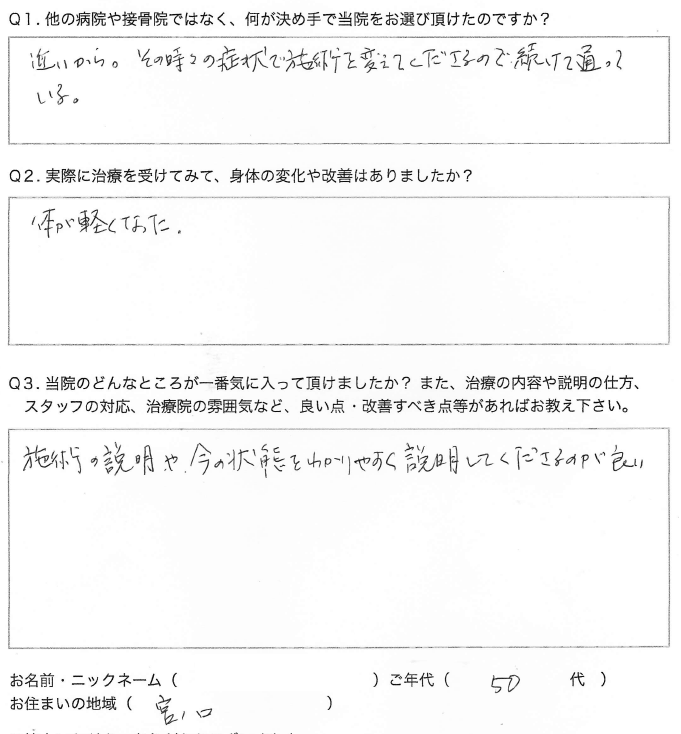 Q1.他の病院や接骨院ではなく、何が決め手で当院をお選び頂けたのですか？
近いから。その時々の症状で施術を変えてくださるので続けて通って
いる。
Q2.実際に治療を受けてみて、身体の変化や改善はありましたか？
体が軽くなった.
Q3.当院のどんなところが一番気に入って頂けましたか？ また、治療の内容や説明の仕方、
スタッフの対応、治療院の雰囲気など、良い点・改善すべき点等があればお教え下さい。
施術の説明や、今の状態をわかりやすく説明してくださるのが良い
お名前・ニックネーム（　　　）ご年代（ 50 代 ）
お住まいの地域（ 宮ノ口 ）